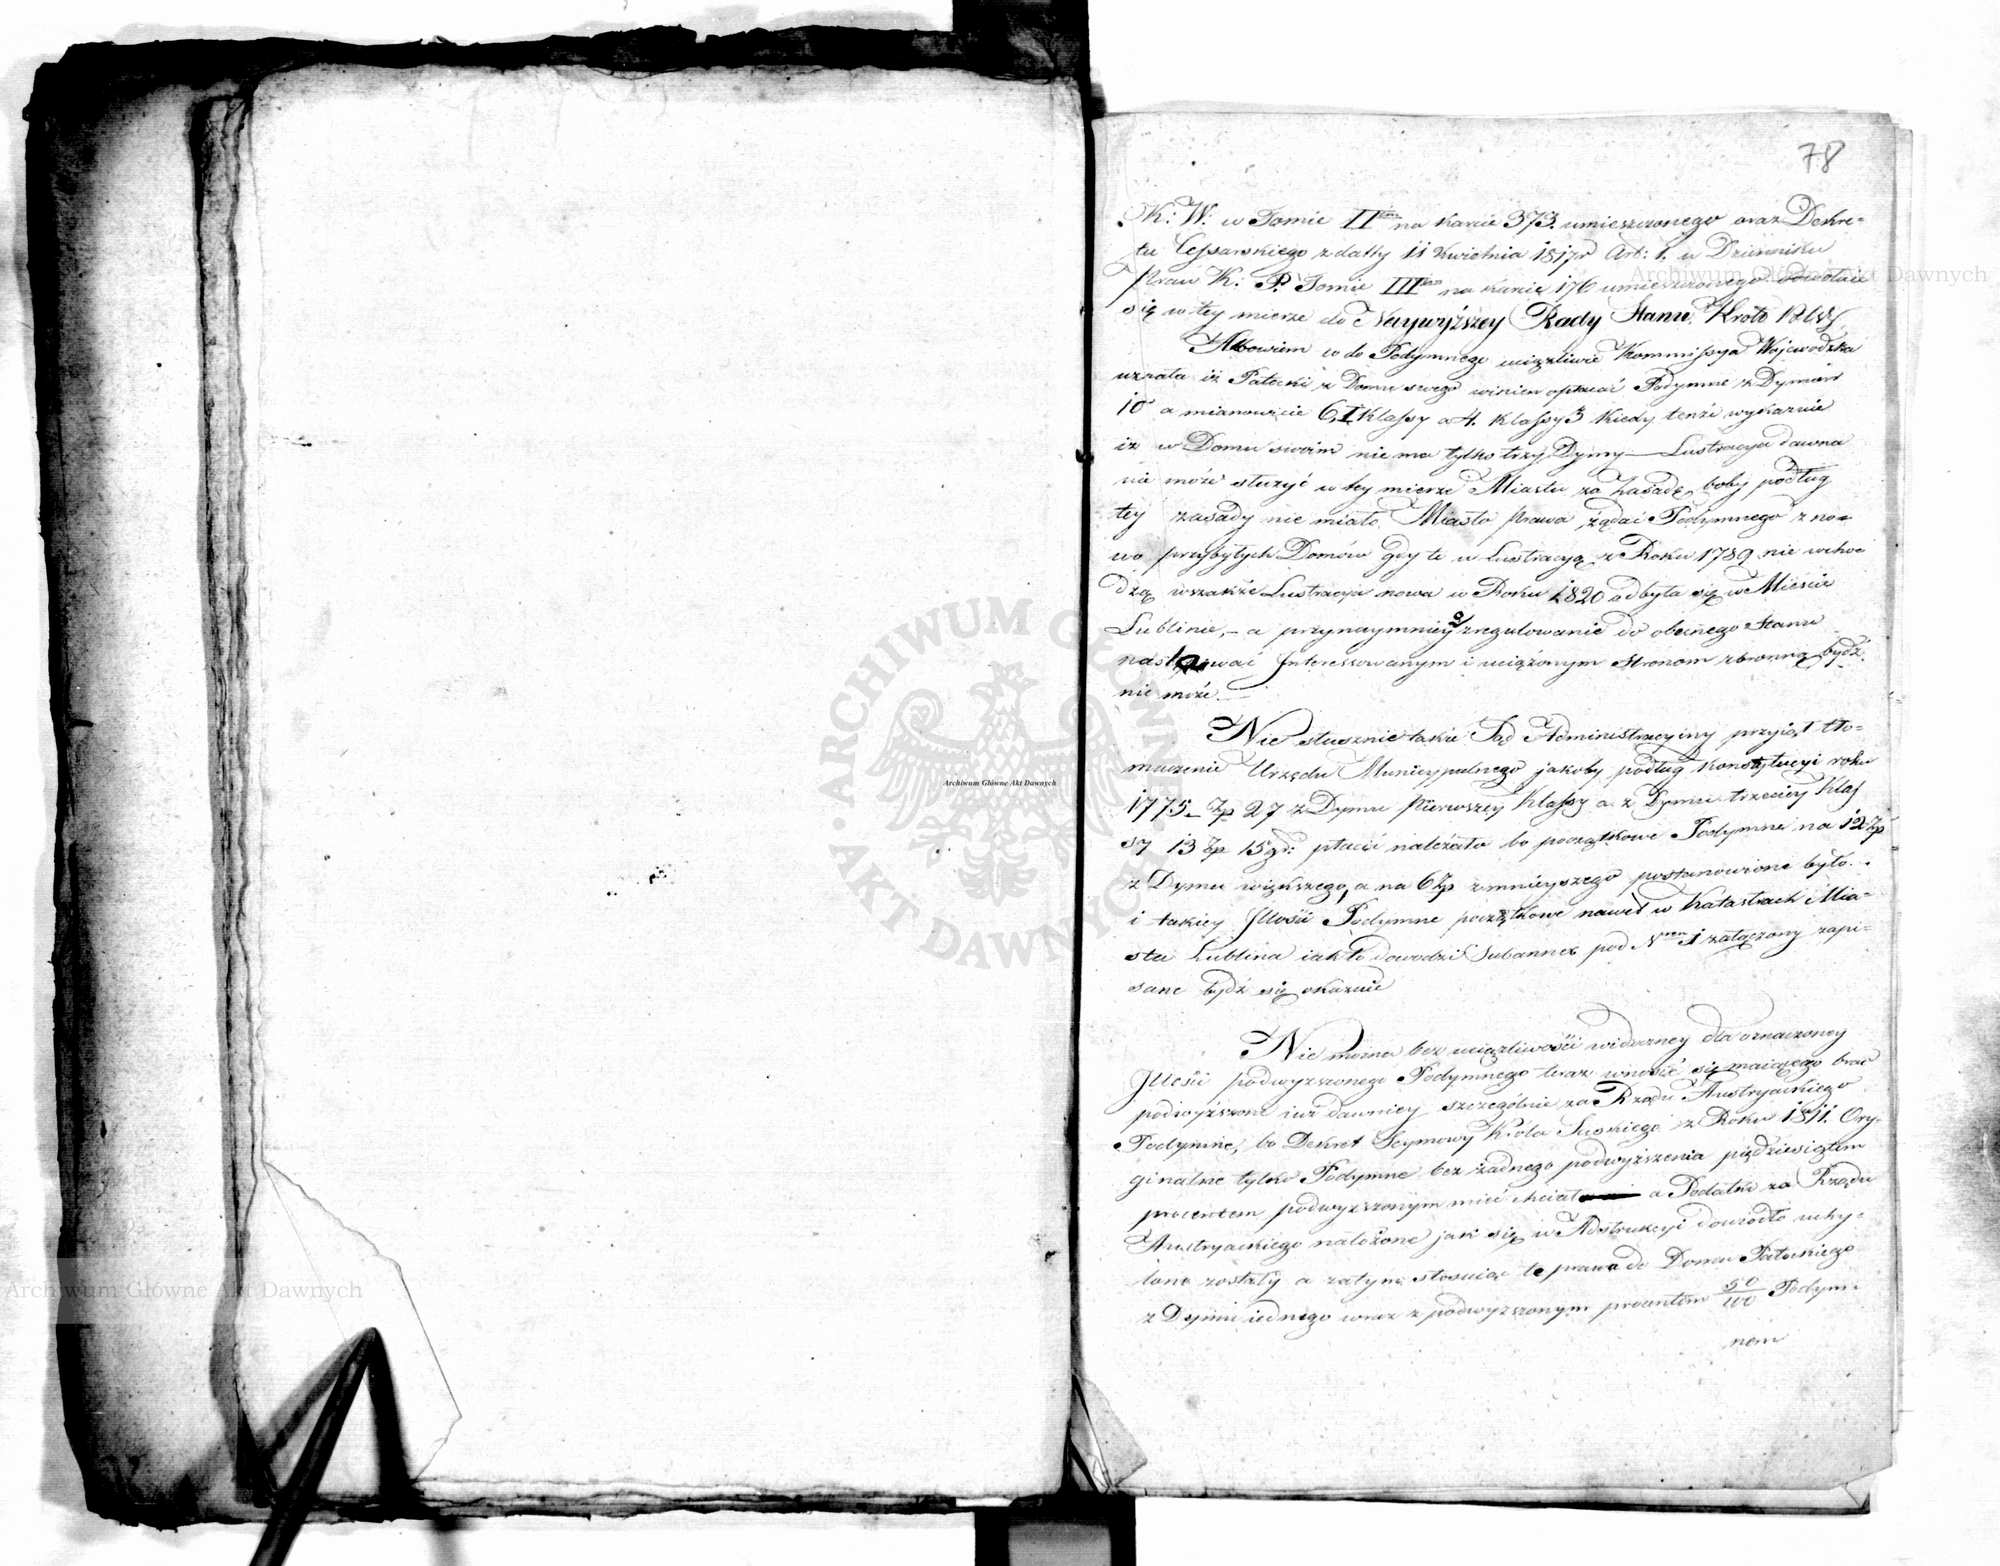 78
K: W: w Tomie II^gim na karcie 373. umieszczonego oraz Dekre-
tu Cessarskiego z datty 11 Kwietnia 1817r Art: 1. w Dzienniku
Praw K: P. Tomie III^cim na karcie 176 umieszczonego odwołuie
się w tey mierze do Naywyższey Rady Stanu Króls Polsk
Albowiem co do Podymnego uciążliwie Kommissya Wojewódzka
uznała iż Patocki z Domu swego winien opłacać Podymne z Dymów
10 a mianowicie 6, I klassy a 4. klassy 3 kiedy tenże wykazuie
iż w Domu swoim nie ma tylko trzy Dymy — Lustracya dawna
nie może służyć w tey mierze Miastu za Zasadę, boby podług
tey zasady nie miało Miasto prawa żądać Podymnego z no-
wo przybyłych Domów gdy te w Lustracyą z Roku 1789 nie wcho
dzą wszakże Lustracya nowa w Roku 1820 odbyła się w Mieście
Lublinie, - a przynaymniey o zregulowanie do obecnego Stanu
nastawać Interessowanym i uciążonym Stronom zbronną bydź
nie może. —
Nie słusznie także Sąd Administracyiny przyiął tło-
maczenie Urzędu Municypalnego jakoby podług Konstytucyi roku
1775 Zp 27 z Dymu pierwszey Klassy a z Dymu trzeciey Klas
sy 13 Zp 15 gr: płacić należało bo początkowe Podymne na 12 Zp
z Dymu większego, a na 6 Zp z mnieyszego postanowione było. -
i takiey Jllości Podymne początkowe nawet w Katastrach Mia-
sta Lublina iak to dowodzi Subannex pod N^rem 1 załączony zapi-
sane bydź się okazuie
Nie można bez uciążliwości widoczney dla oznaczoney
Jllości podwyższonego Podymnego teraz wnosić się maiącego brać
podwyższone iuż dawniey szczególnie za Rządu Austryackiego
Podymne, bo Dekret Seymowy Króla Saskiego z Roku 1811. Ory-
ginalnie tylko Podymne bez żadnego podwyższenia pięćdziesiątem
procentem podwyższonym mieć chciał a Podatki za Rządu
Austryackiego nałożone jak się w Adstrukcyi dowiodło uchy-
lone zostały a zatym stosuiąc te prawa do Domu Patockiego
z Dymu iednego wraz z podwyższonym procentem 50/100 Podym-
nem